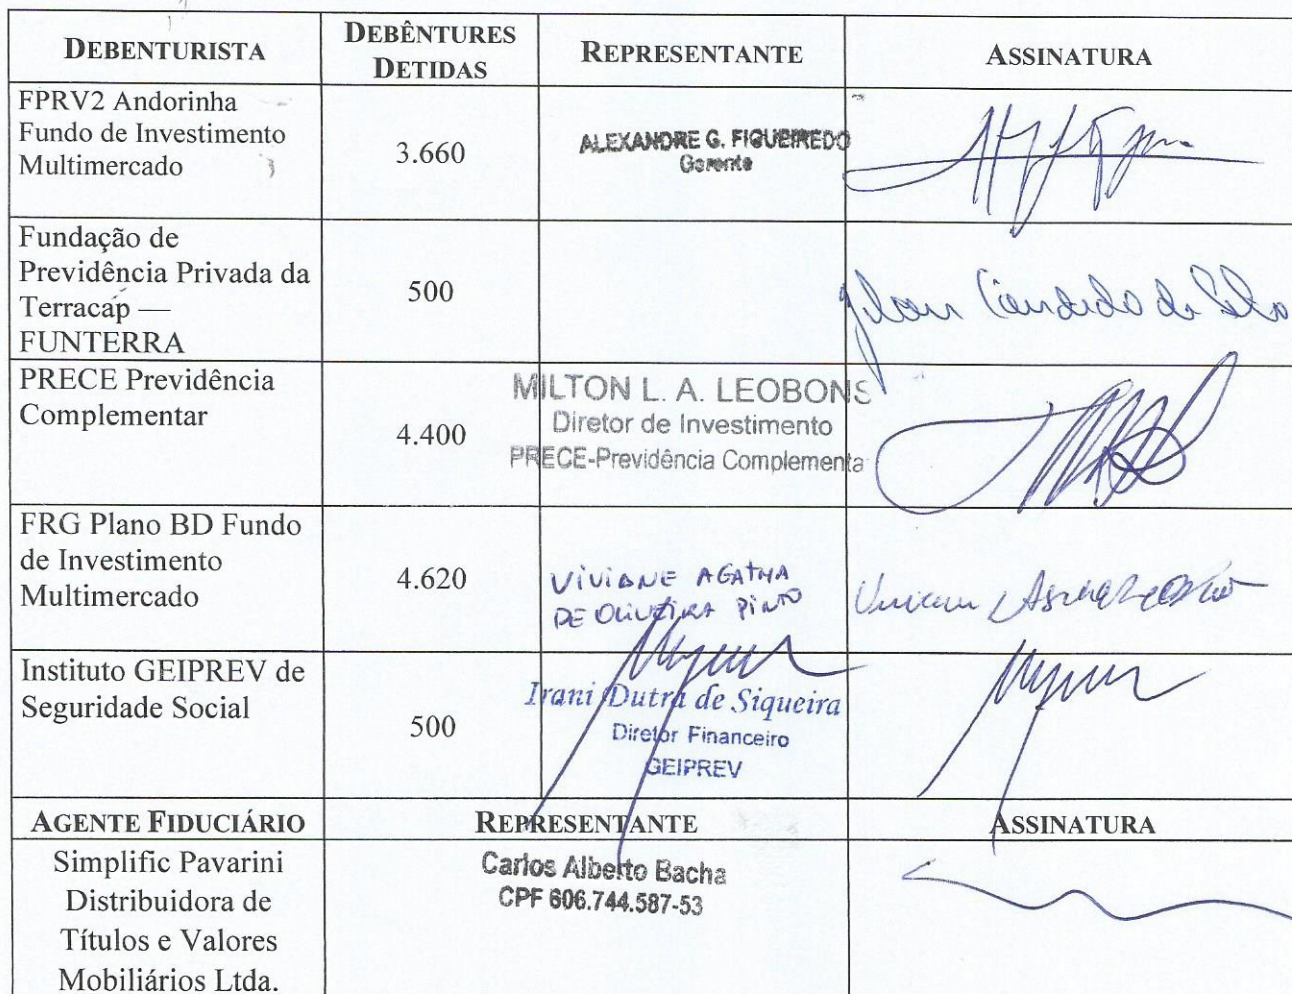 DEBENTURISTA
DEBÊNTURES
DETIDAS
REPRESENTANTE
ASSINATURA
FPRV2 Andorinha
Fundo de Investimento
Multimercado
3.660
ALEXANDRE G. FIGUEIREDO
Gerente
Fundação de
Previdência Privada da
Terracap —
FUNTERRA
500
Candido da Silva
PRECE Previdência
Complementar
4.400
MILTON L. A. LEOBONS
Diretor de Investimento
PRECE-Previdência Complementa
FRG Plano BD Fundo
de Investimento
Multimercado
4.620
VIVIANE AGATHA
DE OLIVEIRA PINTO
Instituto GEIPREV de
Seguridade Social
500
Irani Dutra de Siqueira
Diretor Financeiro
GEIPREV
AGENTE FIDUCIÁRIO
REPRESENTANTE
ASSINATURA
Simplific Pavarini
Distribuidora de
Títulos e Valores
Mobiliários Ltda.
Carlos Alberto Bacha
CPF 606.744.587-53